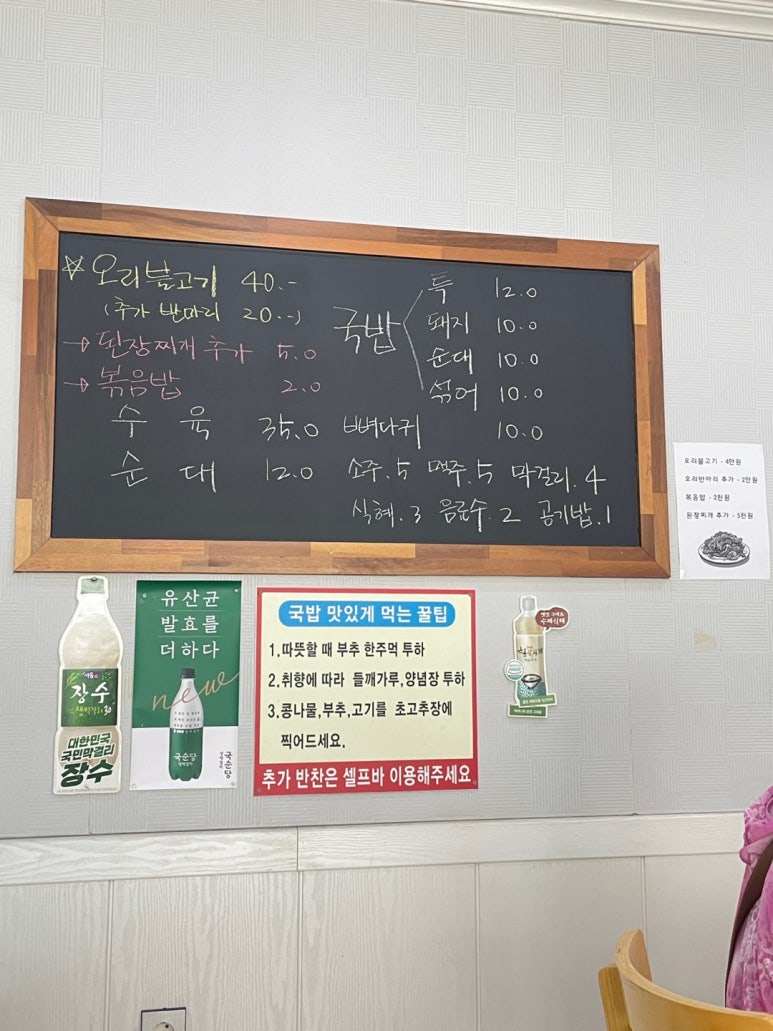 ☆ 오리불고기 40.-
(추가 반마리 20.-)
→ 된장찌개 추가 5.0
→ 볶음밥 2.0
수 육 35.0
순 대 12.0
국밥
특 12.0
돼지 10.0
순대 10.0
섞어 10.0
뼈다귀 10.0
소주.5 맥주.5 막걸리.4
식혜.3 음료수.2 공기밥.1
오리불고기 - 4만원
오리반마리 추가 - 2만원
볶음밥 - 2천원
된장찌개 추가 - 5천원
장수
생막걸리
대한민국
국민막걸리
장수
유산균
발효를
더하다
new
국순당
국순당
국밥 맛있게 먹는 꿀팁
1.따뜻할 때 부추 한주먹 투하
2.취향에 따라 들깨가루,양념장 투하
3.콩나물,부추,고기를 초고추장에
찍어드세요.
추가 반찬은 셀프바 이용해주세요
수제식혜